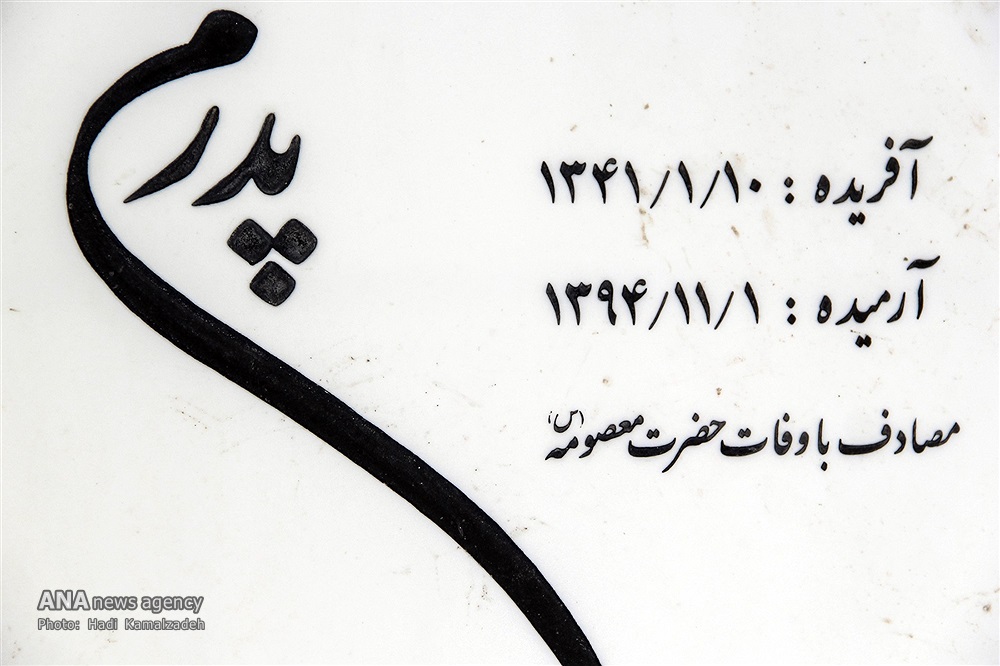 پدرم
آفریده : ۱۳۴۱/۱/۱۰
آرمیده : ۱۳۹۴/۱۱/۱
مصادف با وفات حضرت معصومه (س)
ANA news agency
Photo: Hadi Kamalzadeh